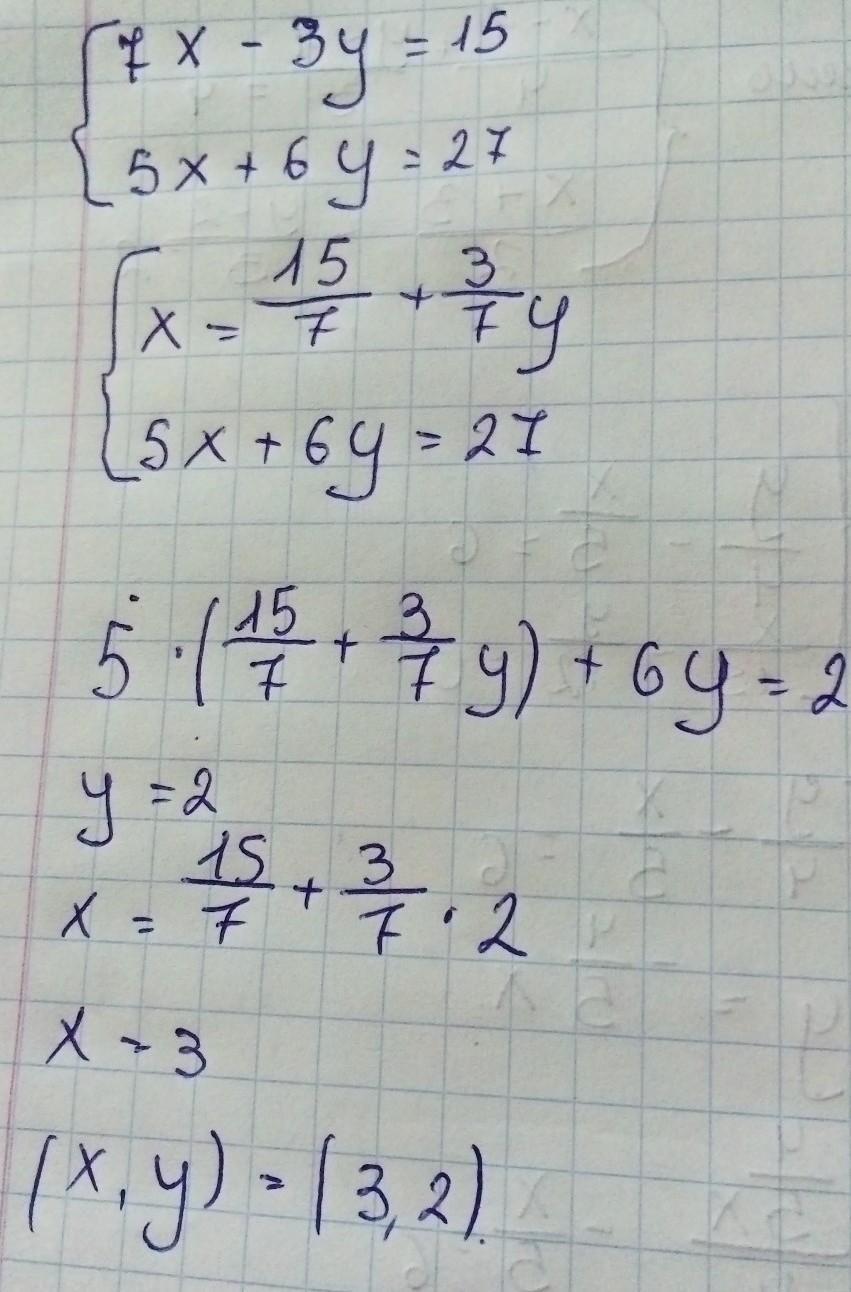 7x - 3y = 15
5x + 6y = 27
x = 15/7 + 3/7 y
5x + 6y = 27
5 · (15/7 + 3/7 y) + 6y = 2
y = 2
x = 15/7 + 3/7 · 2
x = 3
(x, y) = (3, 2).